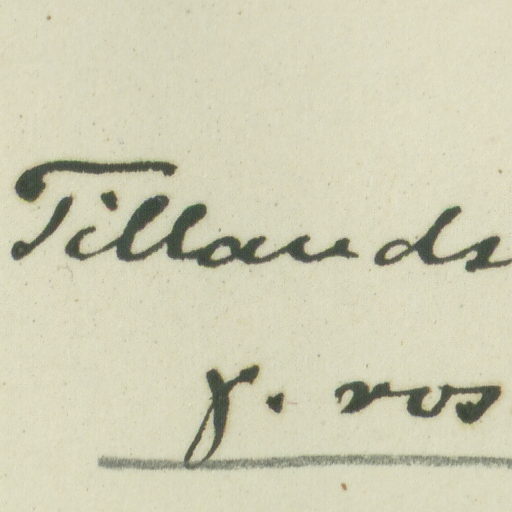 Tillands
γ. ros